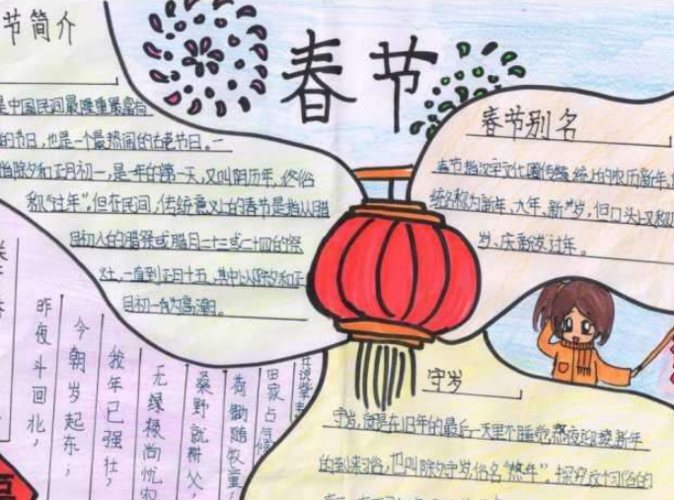 春节
节简介
是中国民间最隆重最富有
的节日,也是一个最热闹的古老节日。一
指除夕和正月初一,是一年的第一天,又叫阴历年,俗
称“过年”。但在民间,传统意义上的春节是指从腊
月初八的腊祭或腊月二十三或二十四的祭
灶,一直到正月十五,其中以除夕和正
月初一为高潮。
春节别名
春节指汉字文化圈传统上的农历新年,
统名称为新年、大年、新岁,但口头上又称
岁、庆新岁、过年。
昨夜斗回北,
今朝岁起东;
我年已强壮,
无绿禄尚忧农
桑野就耕父,
荷锄随牧童;
田家占气
守岁
守岁,就是在旧年的最后一天里不睡觉,熬夜迎接新年
的到来习俗,也叫除夕守岁,俗名“熬年”。探究这个习俗的